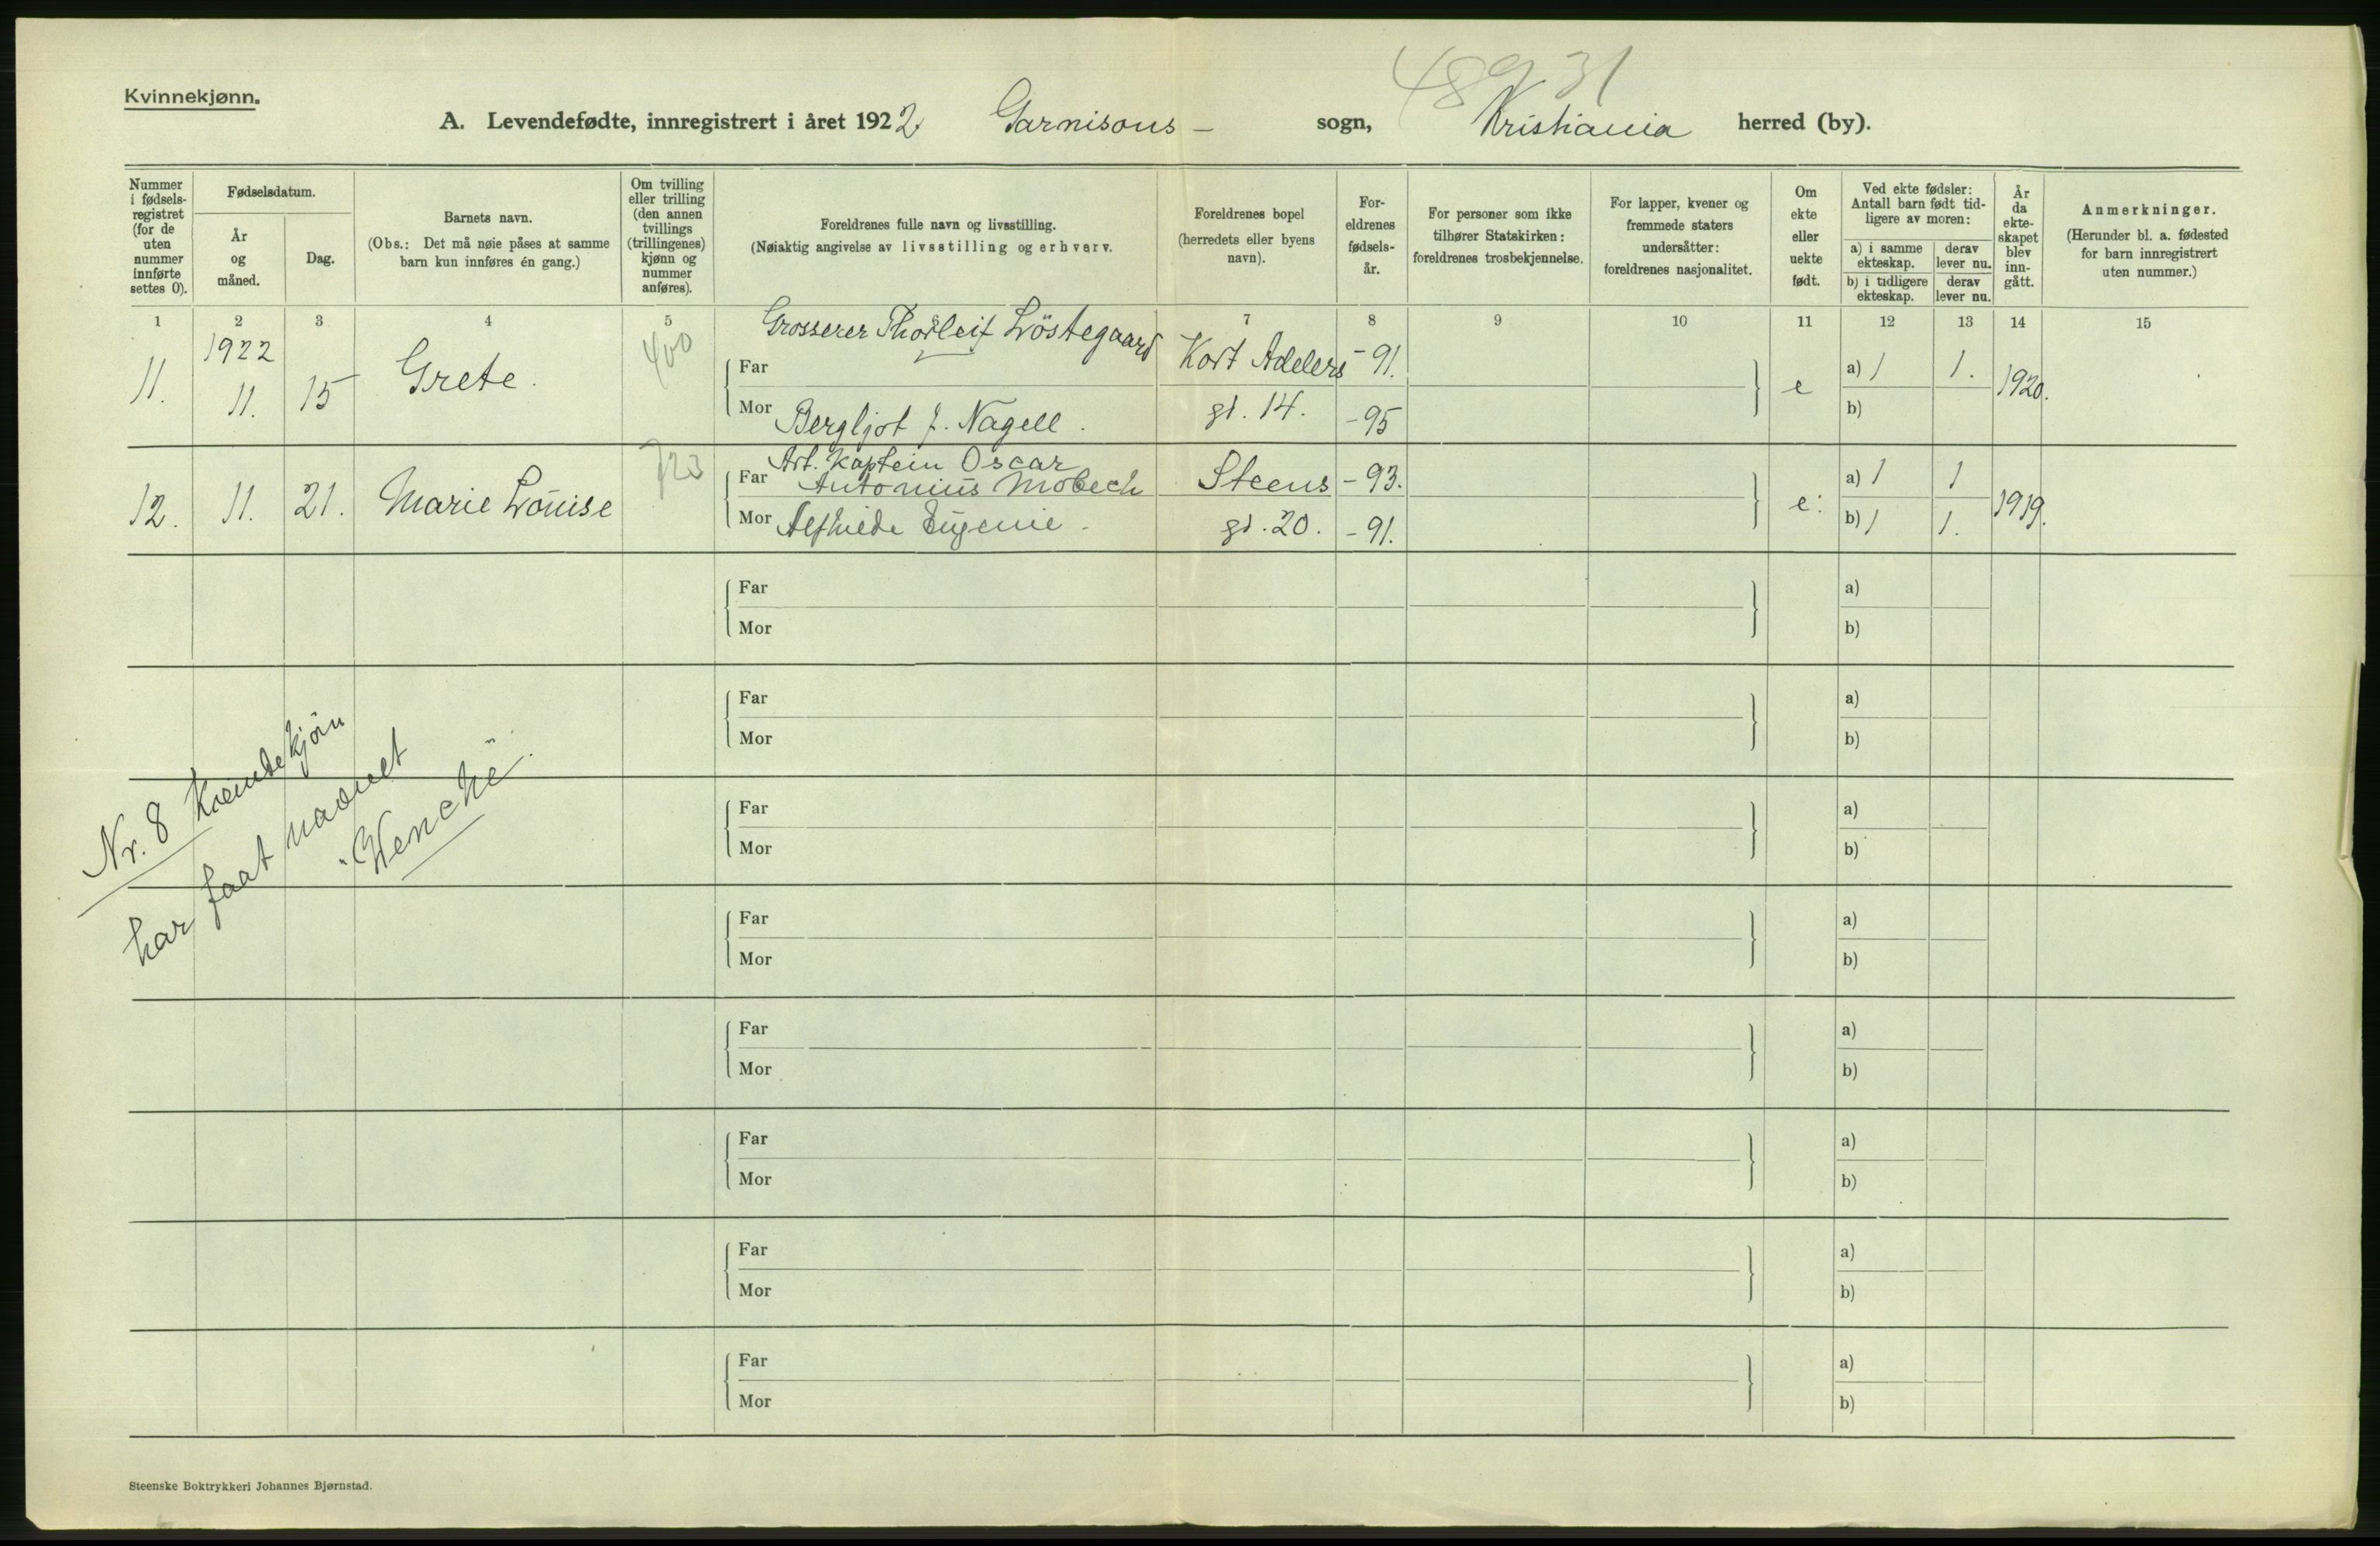 48931
Kvinnekjønn.
A. Levendefødte, innregistrert i året 1922. Garnisons- sogn, Kristiania herred (by).
Nummer i fødsels-registret (for de uten nummer innførte settes 0).
Fødselsdatum.
År og måned.
Dag.
Barnets navn.
(Obs.: Det må nøie påses at samme barn kun innføres én gang.)
Om tvilling eller trilling (den annen tvillings (trillingenes) kjønn og nummer anføres).
Foreldrenes fulle navn og livsstilling.
(Nøiaktig angivelse av livsstilling og erhverv.
Foreldrenes bopel (herredets eller byens navn).
For-eldrenes fødsels-år.
For personer som ikke tilhører Statskirken: foreldrenes trosbekjennelse.
For lapper, kvener og fremmede staters undersåtter: foreldrenes nasjonalitet.
Om ekte eller uekte født.
Ved ekte fødsler: Antall barn født tid-ligere av moren:
a) i samme ekteskap. derav lever nu.
b) i tidligere ekteskap. derav lever nu.
År da ekte-skapet blev inn-gått.
Anmerkninger.
(Herunder bl. a. fødested for barn innregistrert uten nummer.)
1 2 3 4 5 6 7 8 9 10 11 12 13 14 15
1922
400
Grosserer Thorleif Löstegaard
11. 11. 15 Grete. Far Kort Adelers -91. e a) 1 1. 1920.
Mor Bergljot J. Nagell. gt. 14. -95 b)
723
Art. Kaptein Oscar
12. 11. 21. Marie Louise Far Antonius Mobech Steens -93. e: a) 1 1 1919.
Mor Alfhilde Eugenie. gt. 20. -91. b) 1 1.
Far a)
Mor b)
Far a)
Mor b)
Far a)
Mor b)
Far a)
Mor b)
Far a)
Mor b)
Far a)
Mor b)
Far a)
Mor b)
Far a)
Mor b)
Nr. 8 Kvindekjön
har faat navnet
"Wenche".
Steenske Boktrykkeri Johannes Bjørnstad.